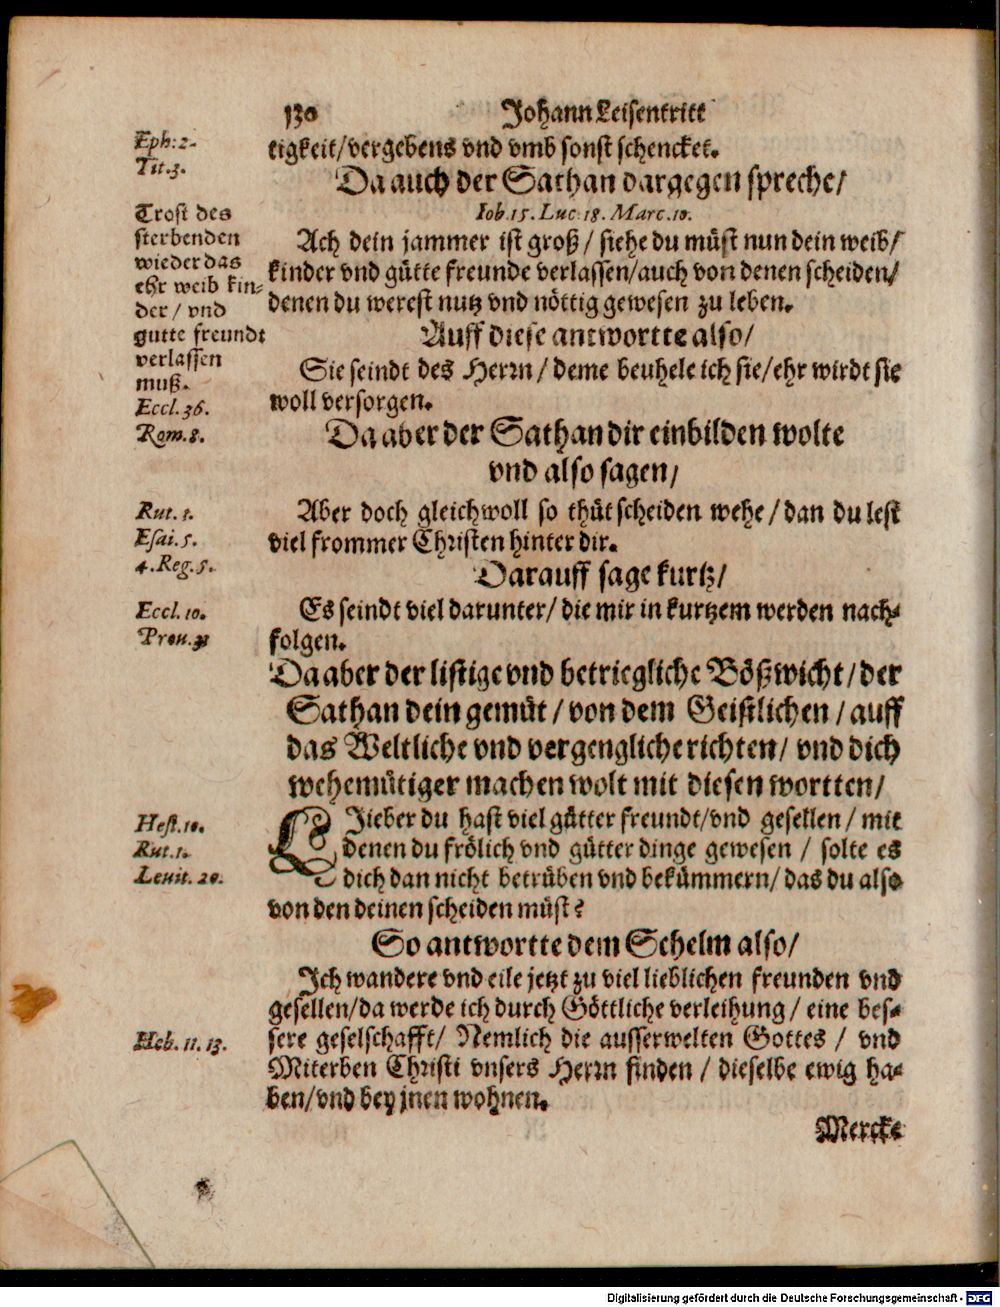 130 Johann Leisentritt
Eph:2.
Tit.3.
tigkeit/vergebens vnd vmb sonst schencket.
Da auch der Sathan dargegen spreche/
Iob.15. Luc 18. Marc.10.
Trost des
sterbenden
wieder das
ehr weib kin-
der / vnd
gutte freundt
verlassen
muß.
Eccl.36.
Rom.8.
Ach dein jammer ist groß / siehe du müst nun dein weib/
kinder vnd gütte freunde verlassen/auch von denen scheiden/
denen du werest nutz vnd nöttig gewesen zu leben.
Auff diese antwortte also/
Sie seindt des Herrn / deme beuhele ich sie/ehr wirdt sie
woll versorgen.
Da aber der Sathan dir einbilden wolte
vnd also sagen/
Rut. 1.
Esai. 5.
4.Reg.5.
Aber doch gleichwoll so thüt scheiden wehe / dan du lest
viel frommer Christen hinter dir.
Darauff sage kurtz/
Eccl. 10.
Prou. 31
Es seindt viel darunter/ die mir in kurtzem werden nach-
folgen.
Da aber der listige vnd betriegliche Bößwicht/der
Sathan dein gemüt / von dem Geistlichen / auff
das Weltliche vnd vergengliche richten/ vnd dich
wehemütiger machen wolt mit diesen wortten/
Hest.10.
Rut.1.
Leuit. 20.
LJieber du hast viel gütter freundt/vnd gesellen / mit
denen du frölich vnd gütter dinge gewesen / solte es
dich dan nicht betrüben vnd bekümmern/ das du also
von den deinen scheiden müst?
So antwortte dem Schelm also/
Ich wandere vnd eile jetzt zu viel lieblichen freunden vnd
gesellen/da werde ich durch Göttliche verleihung / eine bes-
Heb. 11. 13.
sere geselschafft/ Nemlich die ausserwelten Gottes / vnd
Miterben Christi vnsers Herrn finden / dieselbe ewig ha-
ben/vnd bey jnen wohnen.
Mercke
Digitalisierung gefördert durch die Deutsche Forschungsgemeinschaft - DFG